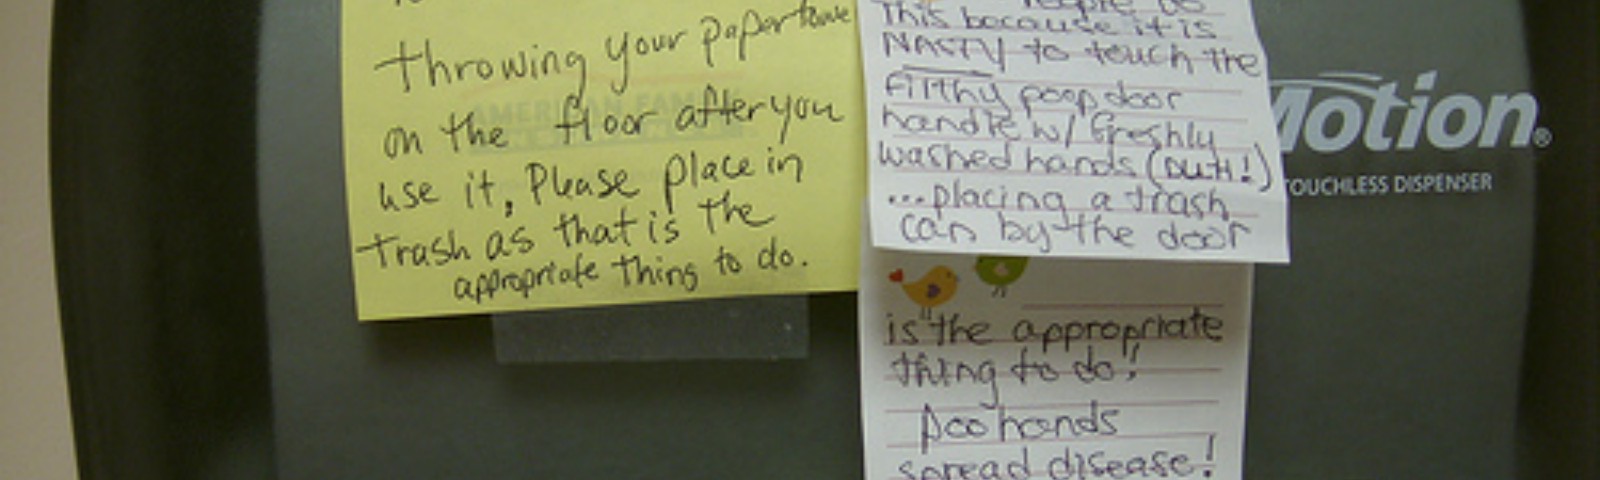 throwing your papertowe
on the floor after you
use it, Please place in
trash as that is the
appropriate thing to do.
This because it is
NASTY to touch the
FILTHY poop door
handle w/ freshly
washed hands (DUH!)
...placing a trash
can by the door
is the appropriate
thing to do!
Poo hands
spread disease!
Motion®
TOUCHLESS DISPENSER
AMERICAN FAM